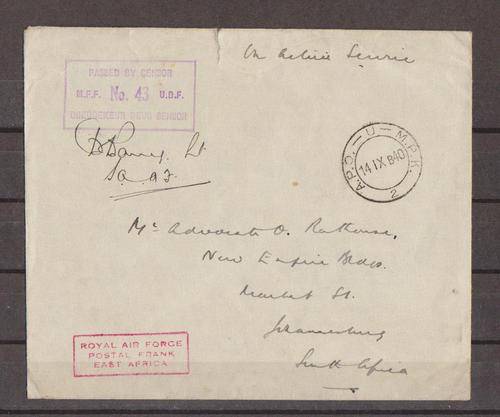 On Active Service
PASSED BY CENSOR
M.F.F. No. 43 U.D.F.
DEUR SENSOR
Lt
A.P.O. — U — M.P.K.
14 IX 840
2
Mr Advocate O.
New Empire Bldgs.
Market St.
Johannesburg
South Africa
ROYAL AIR FORCE
POSTAL FRANK
EAST AFRICA